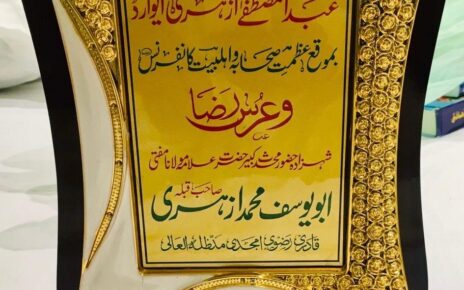 عبدالمصطفےٰ ازہری ایوارڈ
بموقع عظمت صحابہ و اہلبیت کانفرنس
و عرس رضا
شہزادہ حضور محدث کبیر حضرت علامہ مولانا مفتی
ابو یوسف محمد ازہری صاحب قبلہ
قادری رضوی امجدی مدظلہ العالی